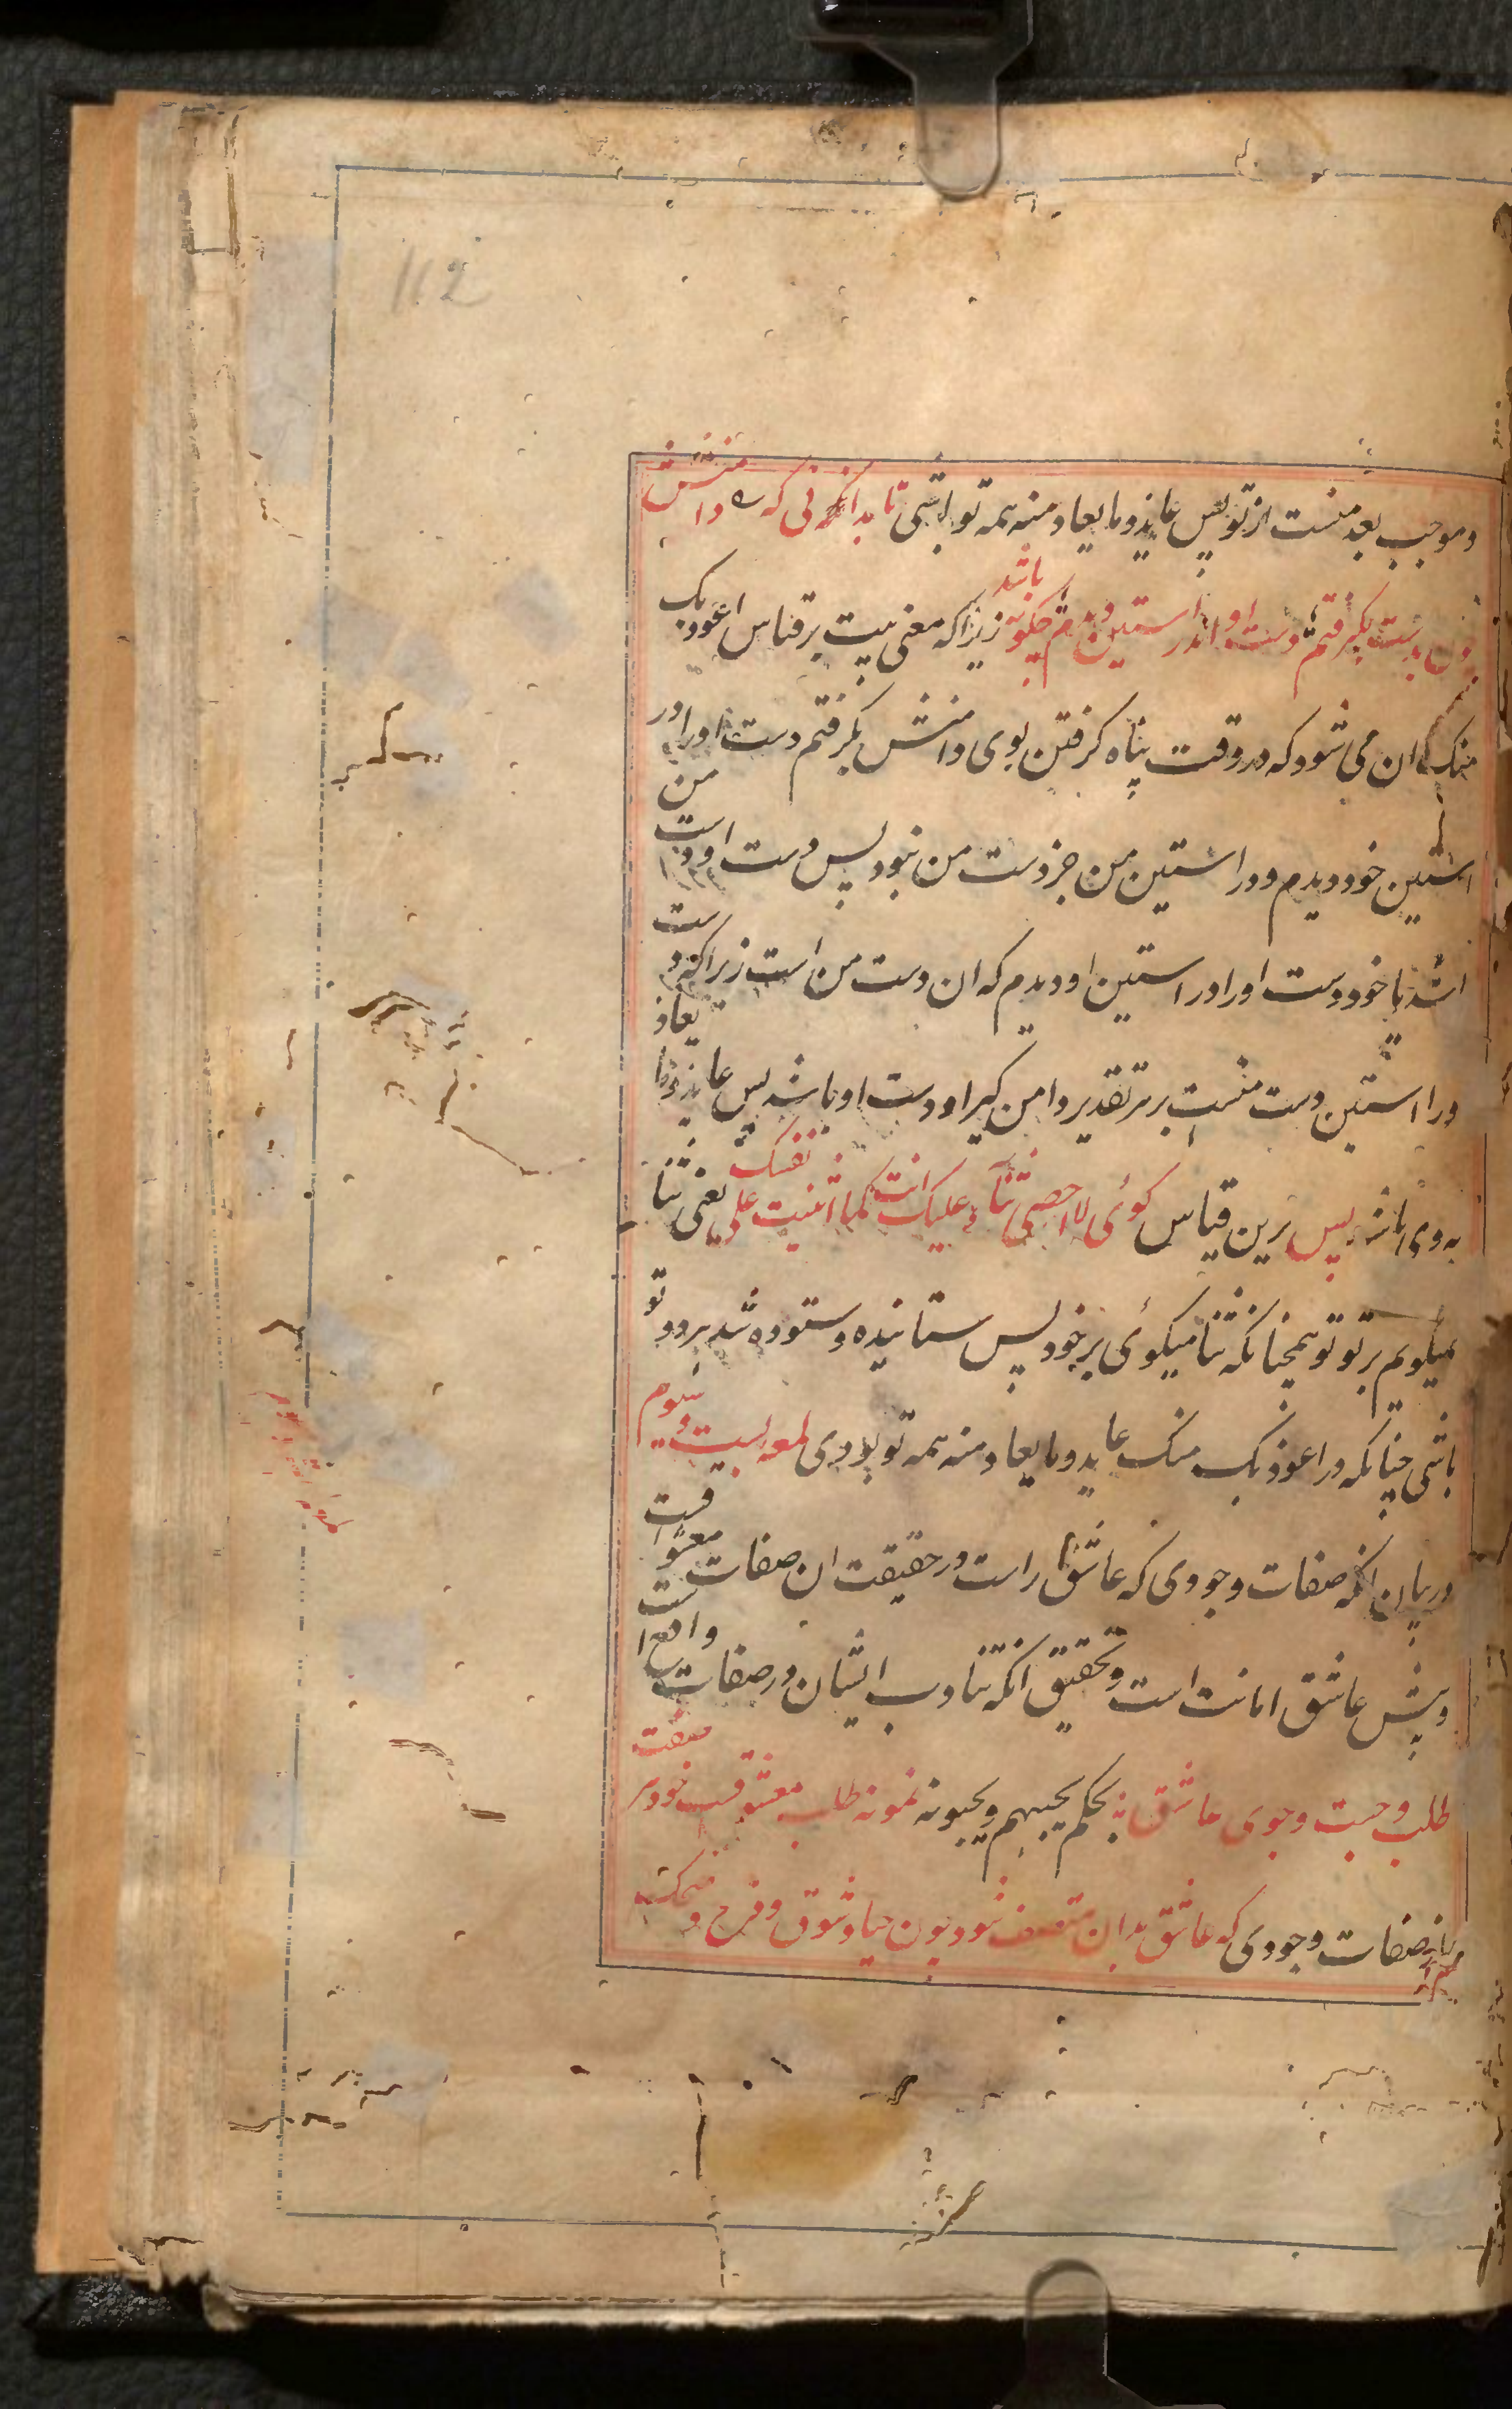 112
و موجب بعد منست از تو پس عایذ و ما یعاذ منه همه تو باشی تا بدانکه فی که ه دامنش
چون بدست بگیرفتم دست او اندر استین دیدم چگونه باشد زیرا که معنی بیت بر قیاس اعوذ بک
منک ان می شود که در وقت پناه گرفتن بوی دامنش بگرفتم دست او را در
استین خود دیدم و در استین من جز دست من نبود پس دست او دست من است
باشد یا خود دست او را در استین او دیدم که ان دست من است زیرا که دست
در استین دست منست بر هر تقدیر دامن گیر او دست او باشد پس عایذ و ما یعاذ
به وی باشد پس برین قیاس گوئی لا احصی ثناء علیک انت کما اثنیت علی نفسک یعنی ثنا
میگویم بر تو تو همچنانکه ثنا میگوئی بر خود پس ستاینده و ستوده شد هر دو تو
باشی چنانکه در اعوذ بک منک عاید و ما یعاد منه همه تو بودی لمعه بیست و سوم
در بیان انکه صفات وجودی که عاشق راست در حقیقت ان صفات معشوقست
و پیش عاشق امانت است و تحقیق انکه تناوب ایشان در صفات واقع است
طلب و جست و جوی عاشق بحکم یحبهم و یحبونه نمونه طلب معشوقست خود هر صفت
از صفات وجودی که عاشق بدان متصف شود چون حیا و شوق و فرح و ضحک